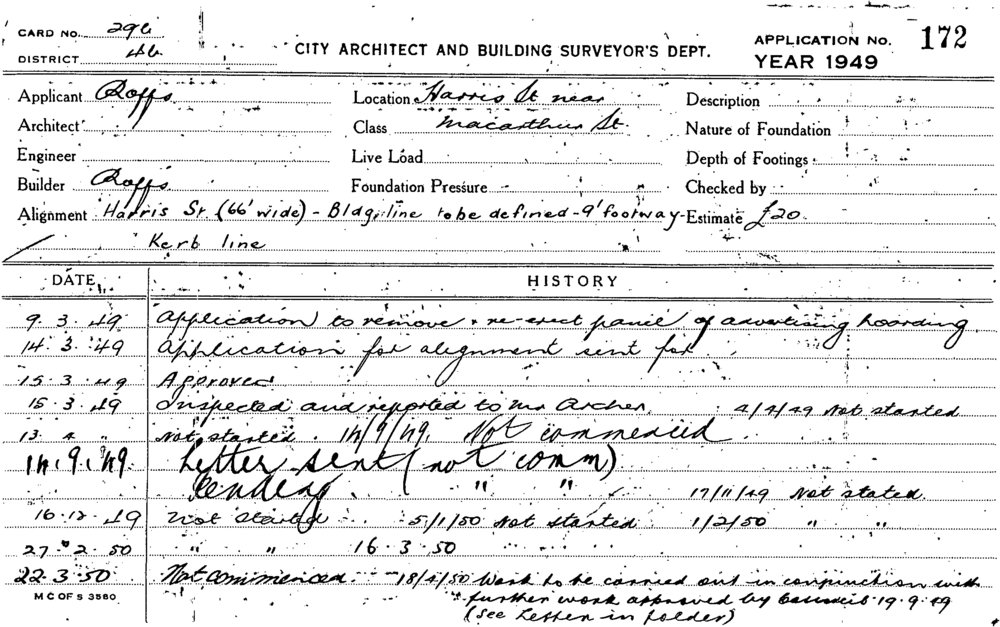 CARD NO. 296
DISTRICT 46
CITY ARCHITECT AND BUILDING SURVEYOR'S DEPT.
APPLICATION No. 172
YEAR 1949
Applicant Roffs Location Harris St near Description
Architect Class Macarthur St. Nature of Foundation
Engineer Live Load Depth of Footings
Builder Roffs Foundation Pressure Checked by
Alignment Harris St (66' wide) - Bldg line to be defined - 9' footway - Estimate £20
Kerb line
DATE HISTORY
9.3.49 Application to remove & re-erect panel of advertising hoarding.
14.3.49 Application for alignment sent for
15.3.49 Approved
15.3.49 Inspected and reported to Mr Archer. 4/4/49 Not started
13.4 " Not started. 14/9/49. Not commenced
14.9.49. Letter sent (not comm)
Pending. " " 17/11/49 Not stated
16.12.49 Not started 5/1/50 Not started 1/2/50 " "
27.2.50 " " 16.3.50
22.3.50 Not commenced. 18/4/50 Work to be carried out in conjunction with
M C OF S 3560 further work approved by Council 19.9.49
(See Letter in folder)